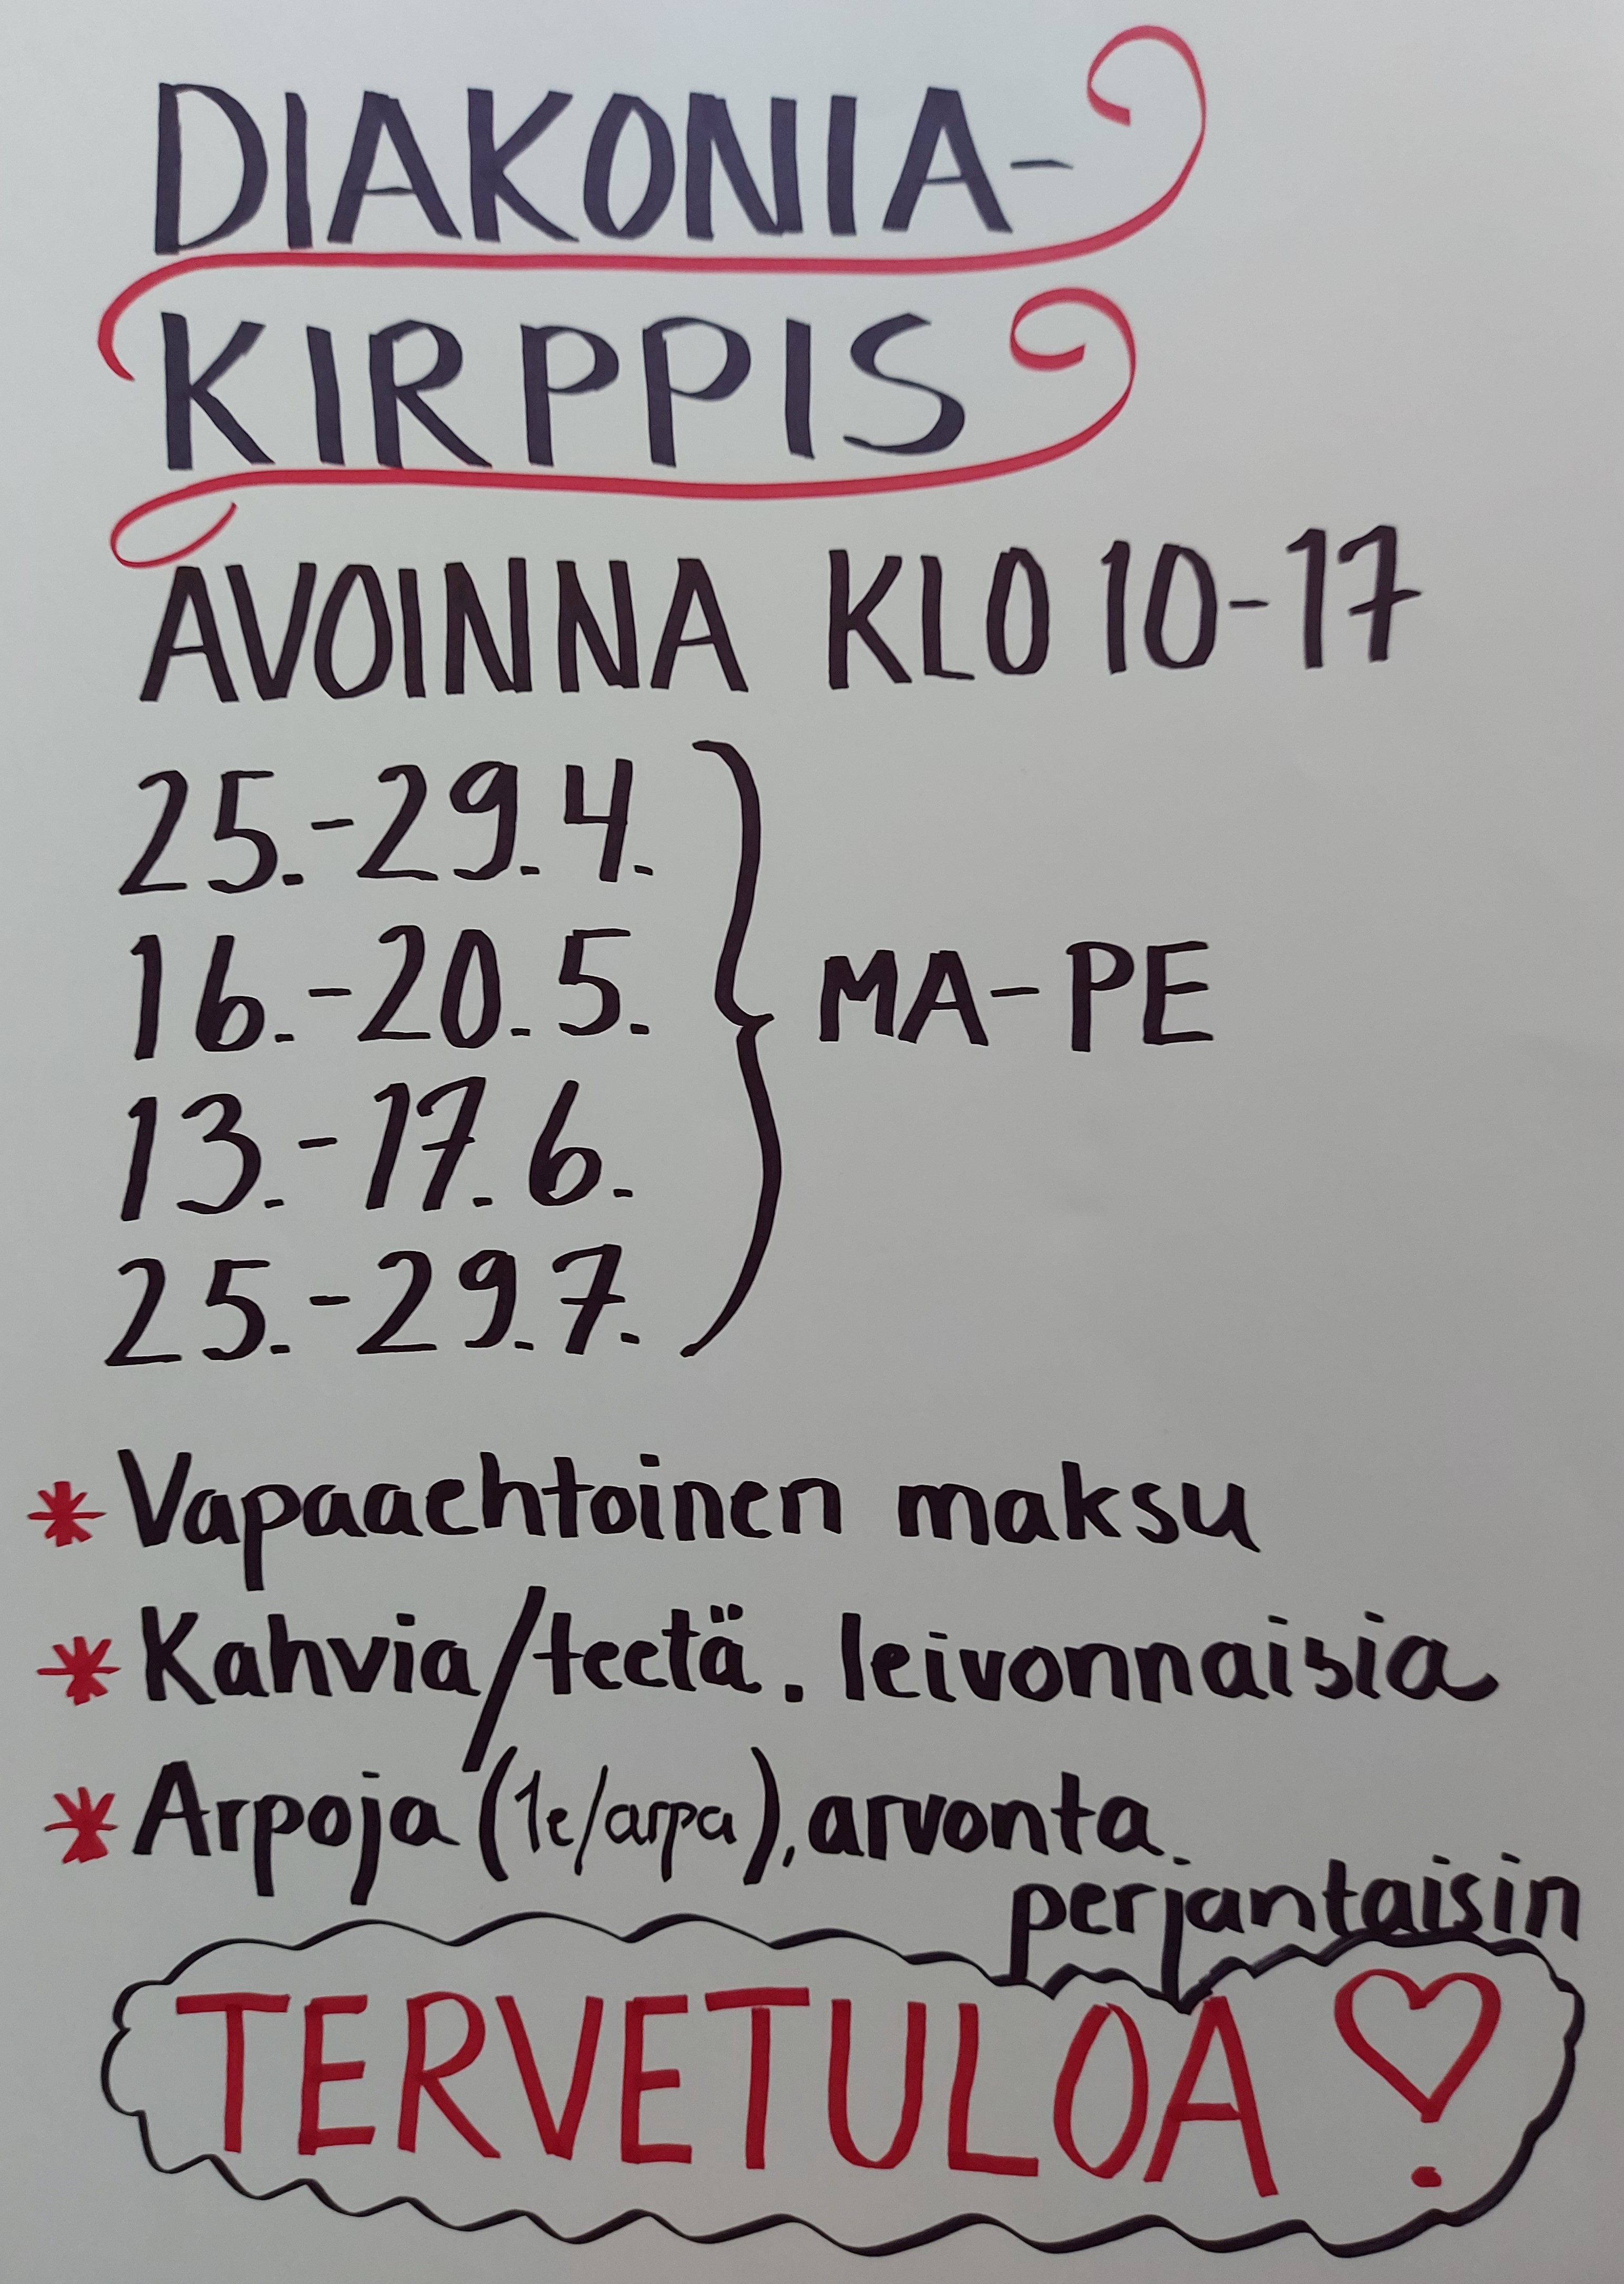 DIAKONIA-
KIRPPIS
AVOINNA KLO 10-17
25.-29.4.
16.-20.5.
13.-17.6.
25.-29.7.
MA-PE
* Vapaaehtoinen maksu
* Kahvia/teetä, leivonnaisia
* Arpoja (1e/arpa), arvonta
perjantaisin
TERVETULOA